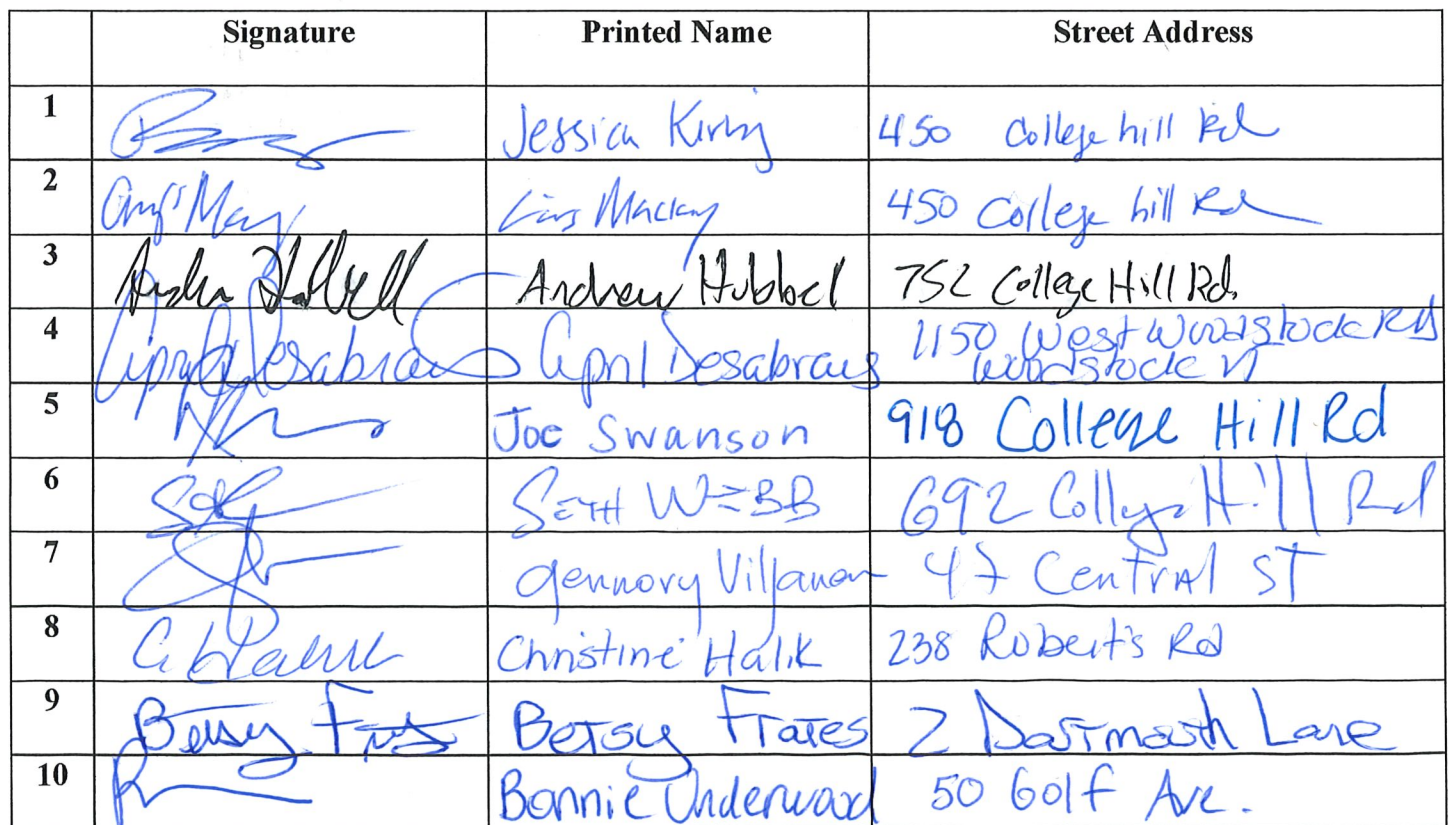 Signature Printed Name Street Address
1 Jessica Kirby 450 College hill Rd
2 Mackay 450 College hill Rd
3 Andrew Hubbell Andrew Hubbel 752 College Hill Rd.
4 April Desabrais April Desabrais 1150 West Woodstock Rd
Woodstock Vt
5 Joe Swanson 918 College Hill Rd
6 SETH WEBB 692 College Hill Rd
7 Gennory Villanon 47 Central ST
8 C. Halik Christine Halik 238 Robert's Rd
9 Betsy Frates Betsy Frates 2 Dartmouth Lane
10 Bonnie Underwood 50 Golf Ave.